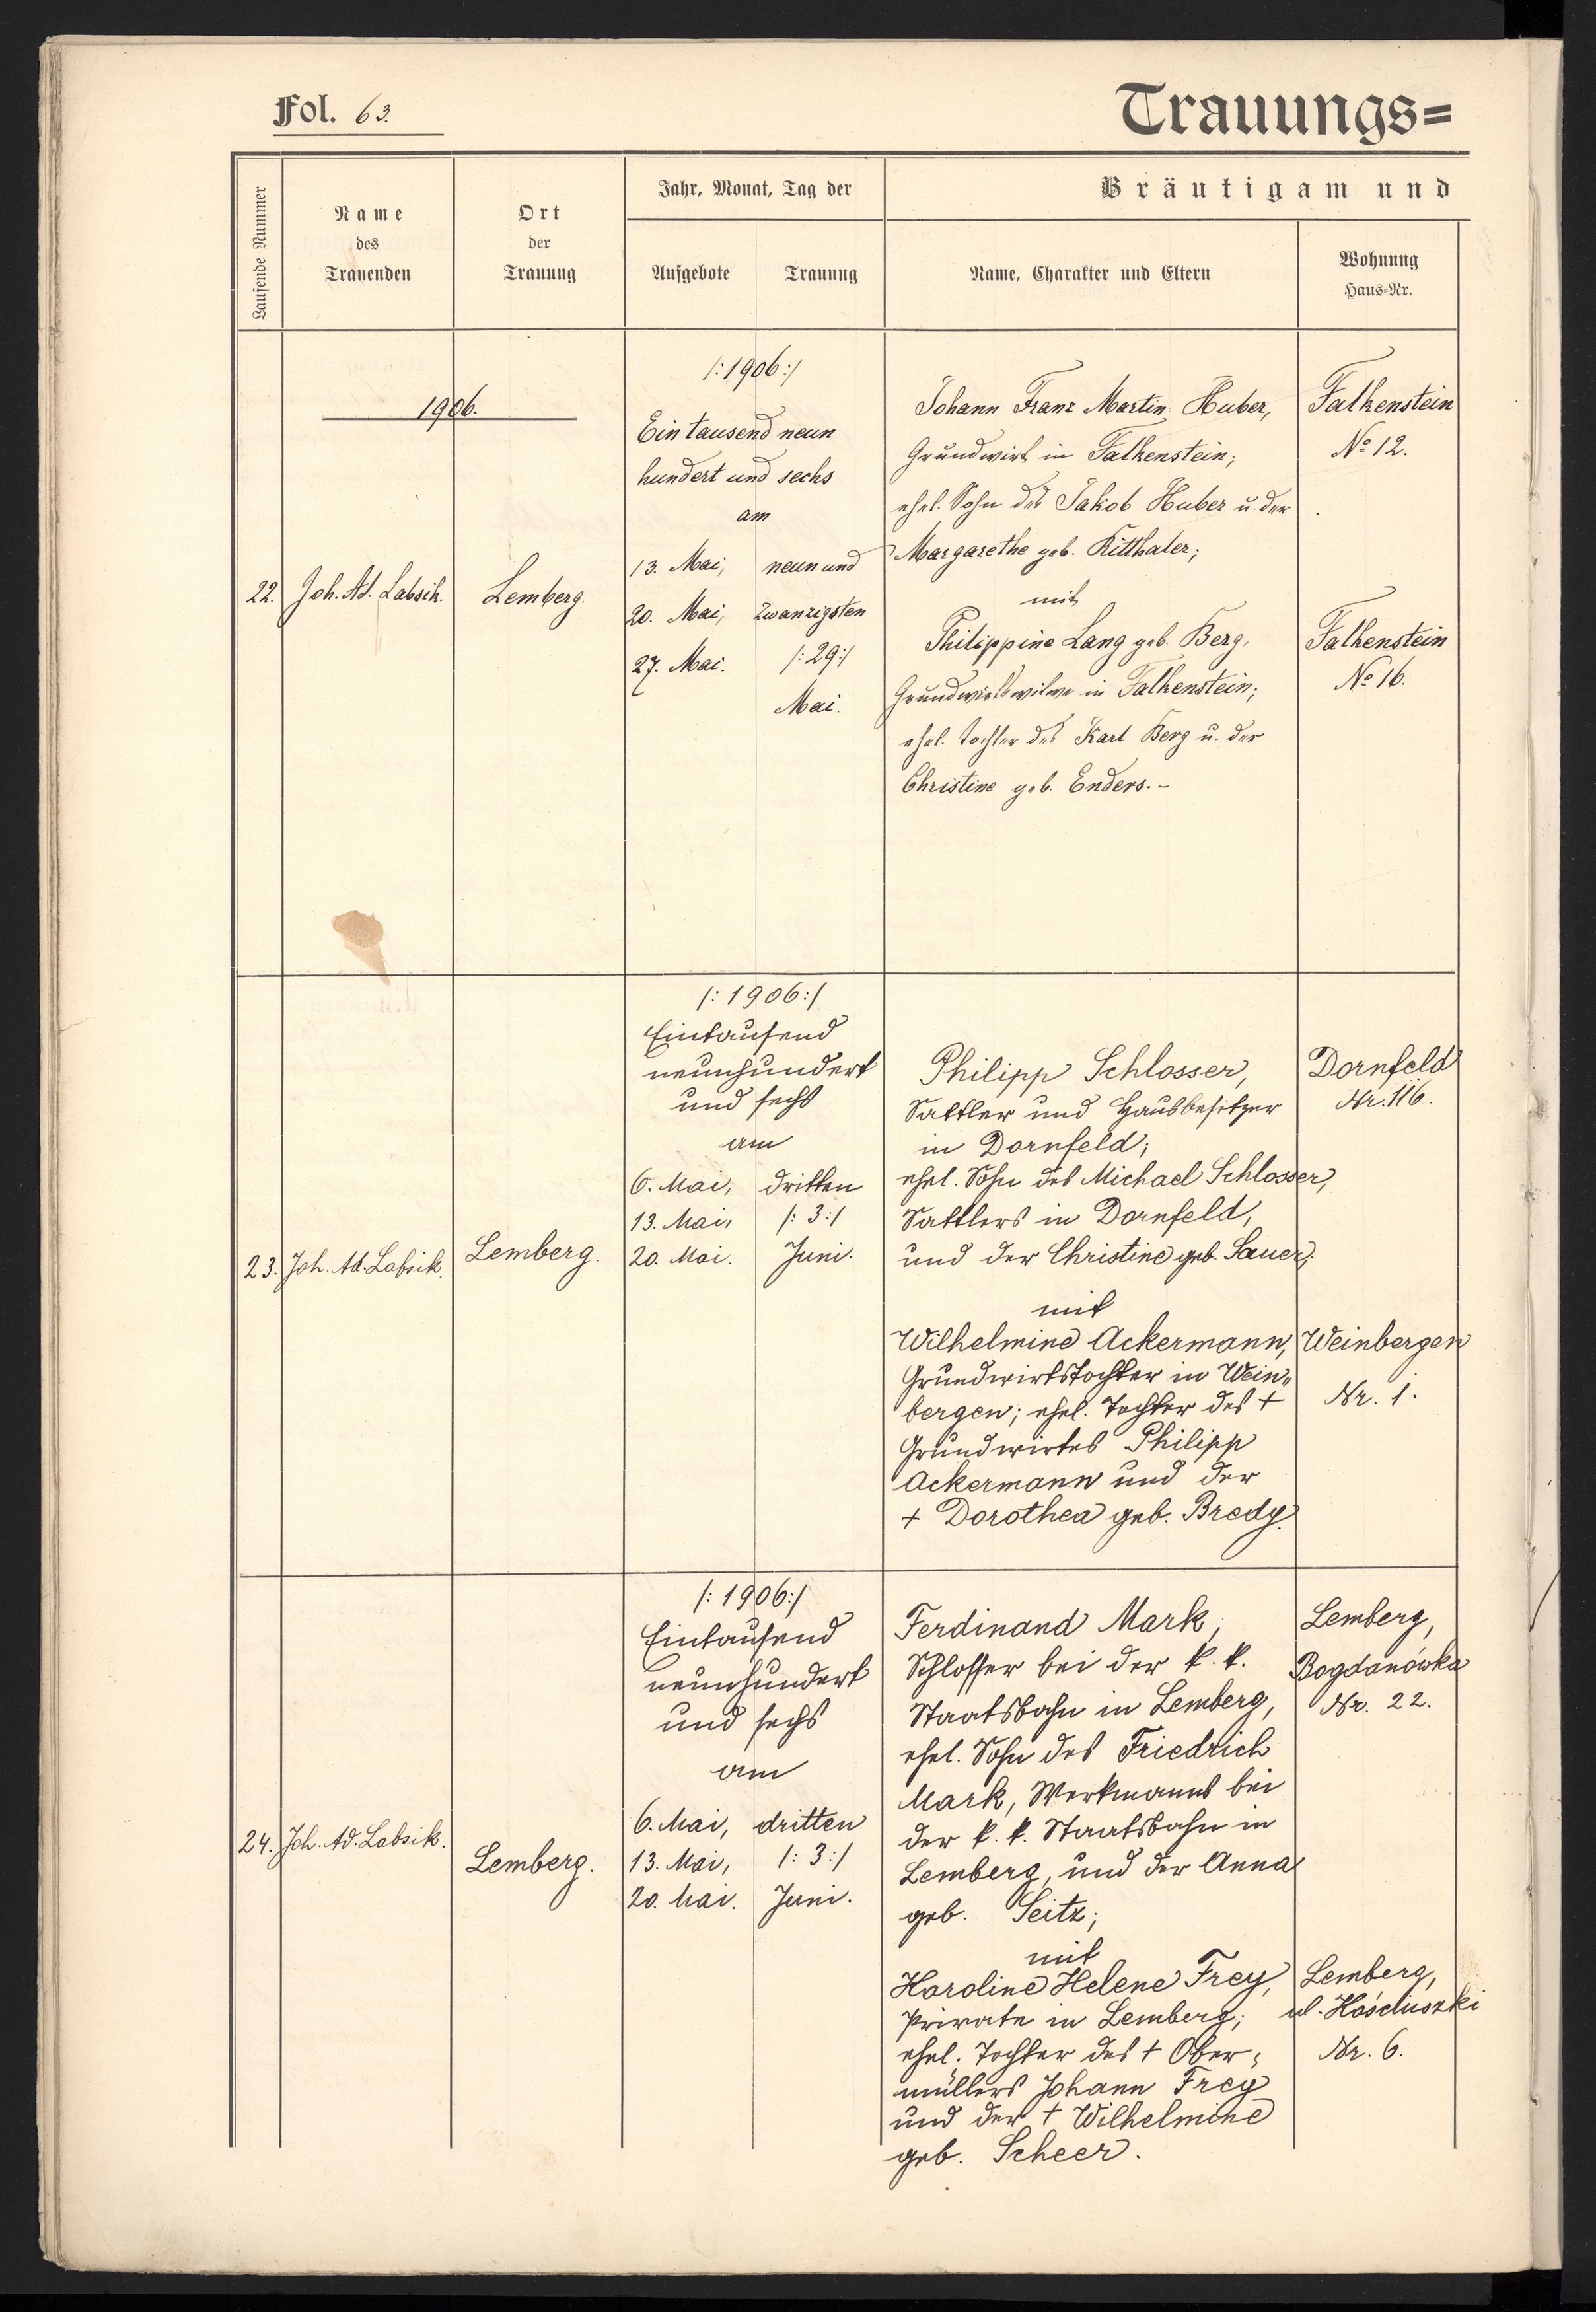 Fol. 63.
Trauungs=
Laufende Nummer
Name
des
Trauenden
Ort
der
Trauung
Jahr, Monat, Tag der
Aufgebote
Trauung
Bräutigam und
Name, Charakter und Eltern
Wohnung
Haus-Nr.
1906.
22.
Joh. Ad. Labsik.
Lemberg.
/:1906:/
Ein tausend neun
hundert und sechs
am
13. Mai,
20. Mai,
27. Mai.
neun und
zwanzigsten
/:29:/
Mai.
Johann Franz Martin Huber,
Grundwirt in Falkenstein;
ehel. Sohn des Jakob Huber u. der
Margarethe geb. Kitthaler;
mit
Philippine Lang geb. Berg,
Grundwirtswitwe in Falkenstein;
ehel. Tochter des Karl Berg u. der
Christine geb. Enders. -
Falkenstein
No 12.
Falkenstein
No 16.
23.
Joh. Ad. Labsik.
Lemberg.
/:1906:/
Eintausend
neunhundert
und sechs
am
6. Mai,
13. Mai,
20. Mai.
dritten
/:3:/
Juni.
Philipp Schlosser,
Sattler und Hausbesitzer
in Dornfeld;
ehel. Sohn des Michael Schlosser,
Sattlers in Dornfeld,
und der Christine geb. Sauer;
mit
Wilhelmine Ackermann,
Grundwirtstochter in Wein-
bergen; ehel. Tochter des +
Grundwirtes Philipp
Ackermann und der
+ Dorothea geb. Bredy.
Dornfeld
Nr. 116.
Weinbergen
Nr. 1.
24.
Joh. Ad. Labsik.
Lemberg.
/:1906:/
Eintausend
neunhundert
und sechs
am
6. Mai,
13. Mai,
20. Mai.
dritten
/:3:/
Juni.
Ferdinand Mark,
Schlosser bei der k. k.
Staatsbahn in Lemberg,
ehel. Sohn des Friedrich
Mark, Werkmanns bei
der k. k. Staatsbahn in
Lemberg, und der Anna
geb. Seitz;
mit
Karoline Helene Frey,
Private in Lemberg;
ehel. Tochter des + Ober-
müllers Johann Frey
und der + Wilhelmine
geb. Scheer.
Lemberg,
Bogdanówka
Nr. 22.
Lemberg,
ul. Kościuszki
Nr. 6.